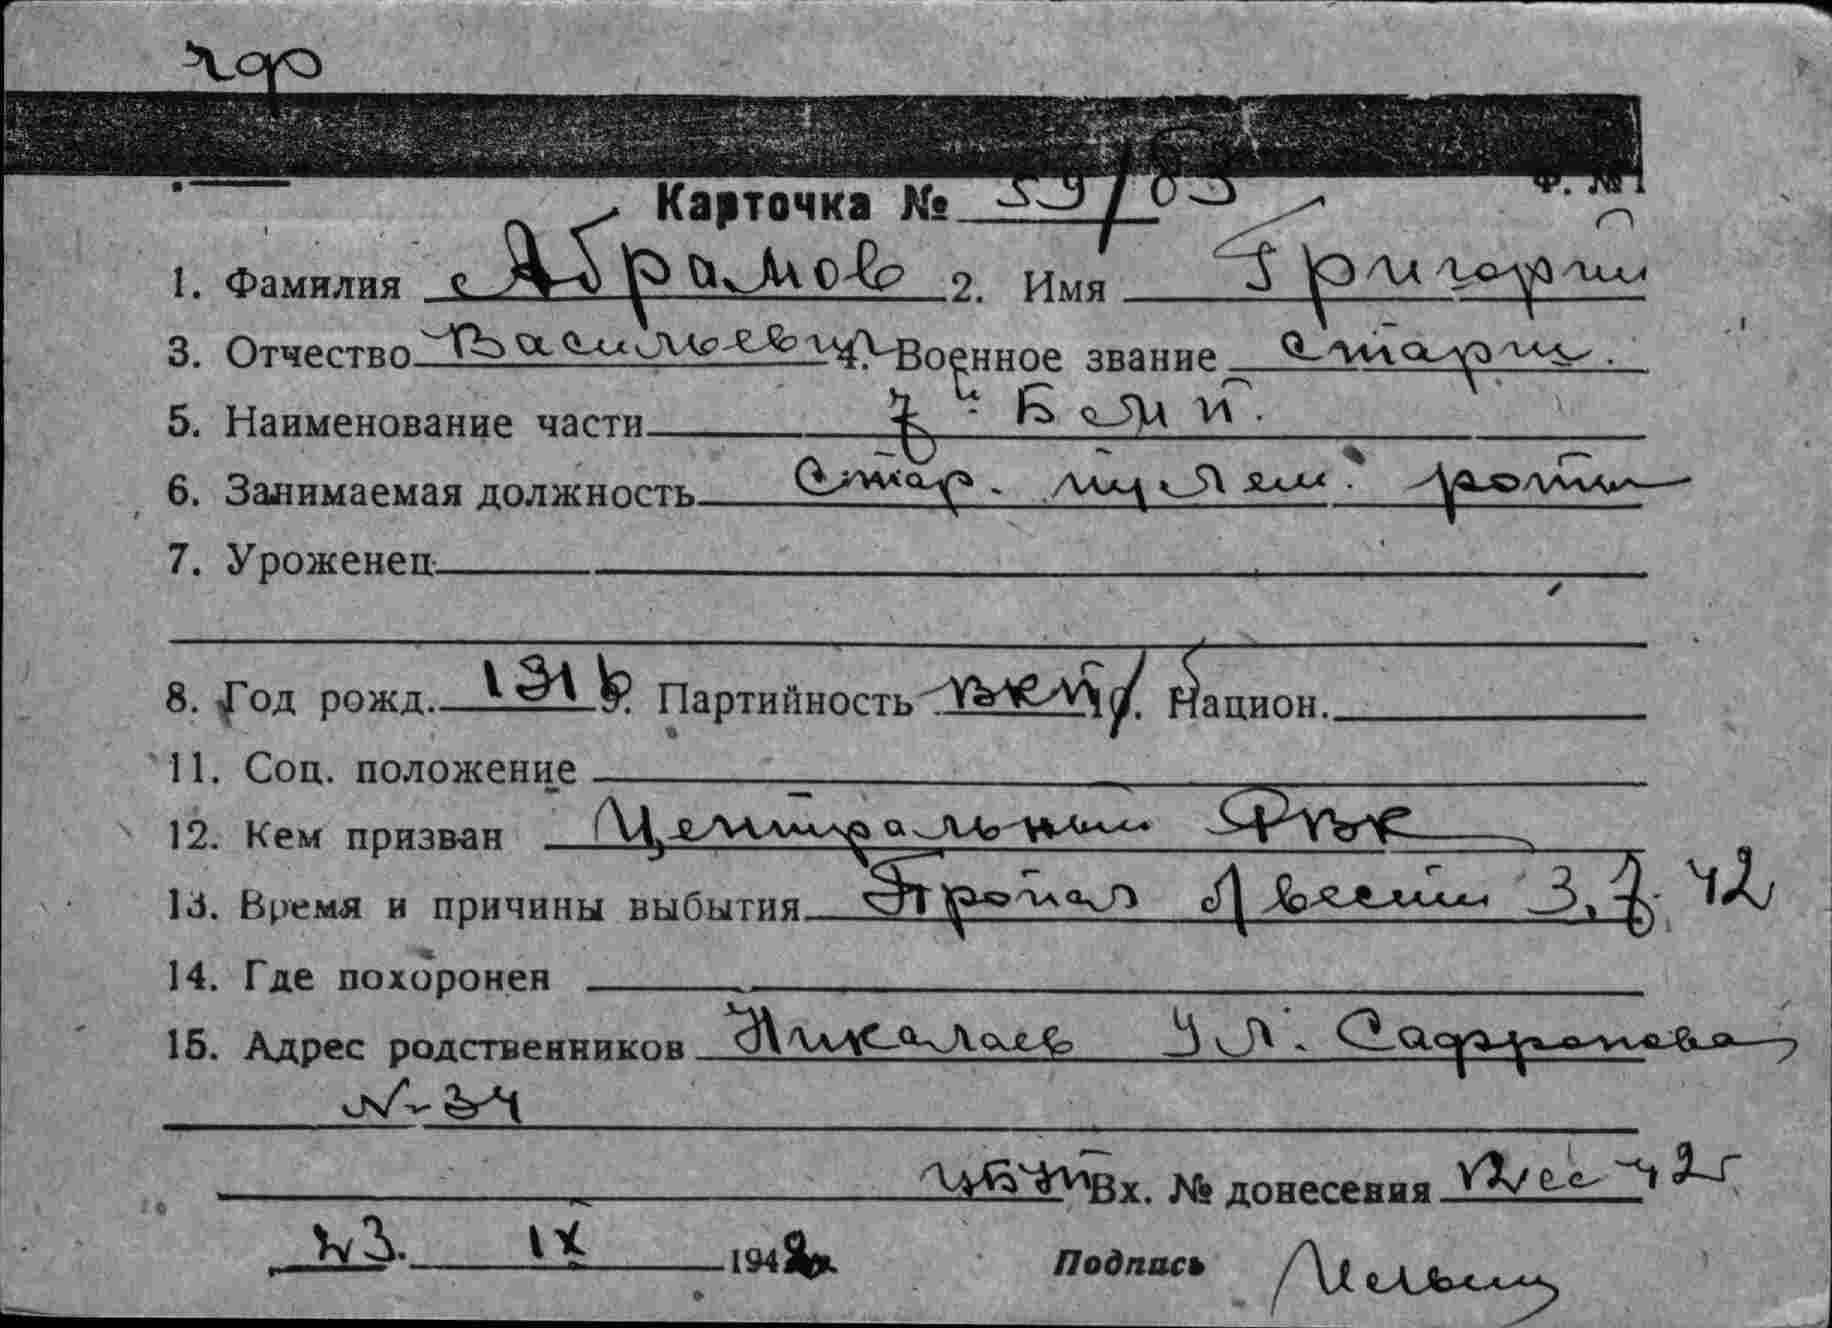 чф
Ф. № 1
Карточка № 59/83
1. Фамилия Абрамов 2. Имя Григорий
3. Отчество Васильевич 4. Военное звание старш.
5. Наименование части 7й Б-н М.П.
6. Занимаемая должность Стар. пулем. роты
7. Уроженец
8. Год рожд. 1916 9. Партийность ВКП/б 10. Национ.
11. Соц. положение
12. Кем призван Центральный РВК
13. Время и причины выбытия Пропал б/вести 3.7.42
14. Где похоронен
15. Адрес родственников Николаев Ул. Сафронова
№ 34
Вх. № донесения 42г
23. IX 1942
Подпись